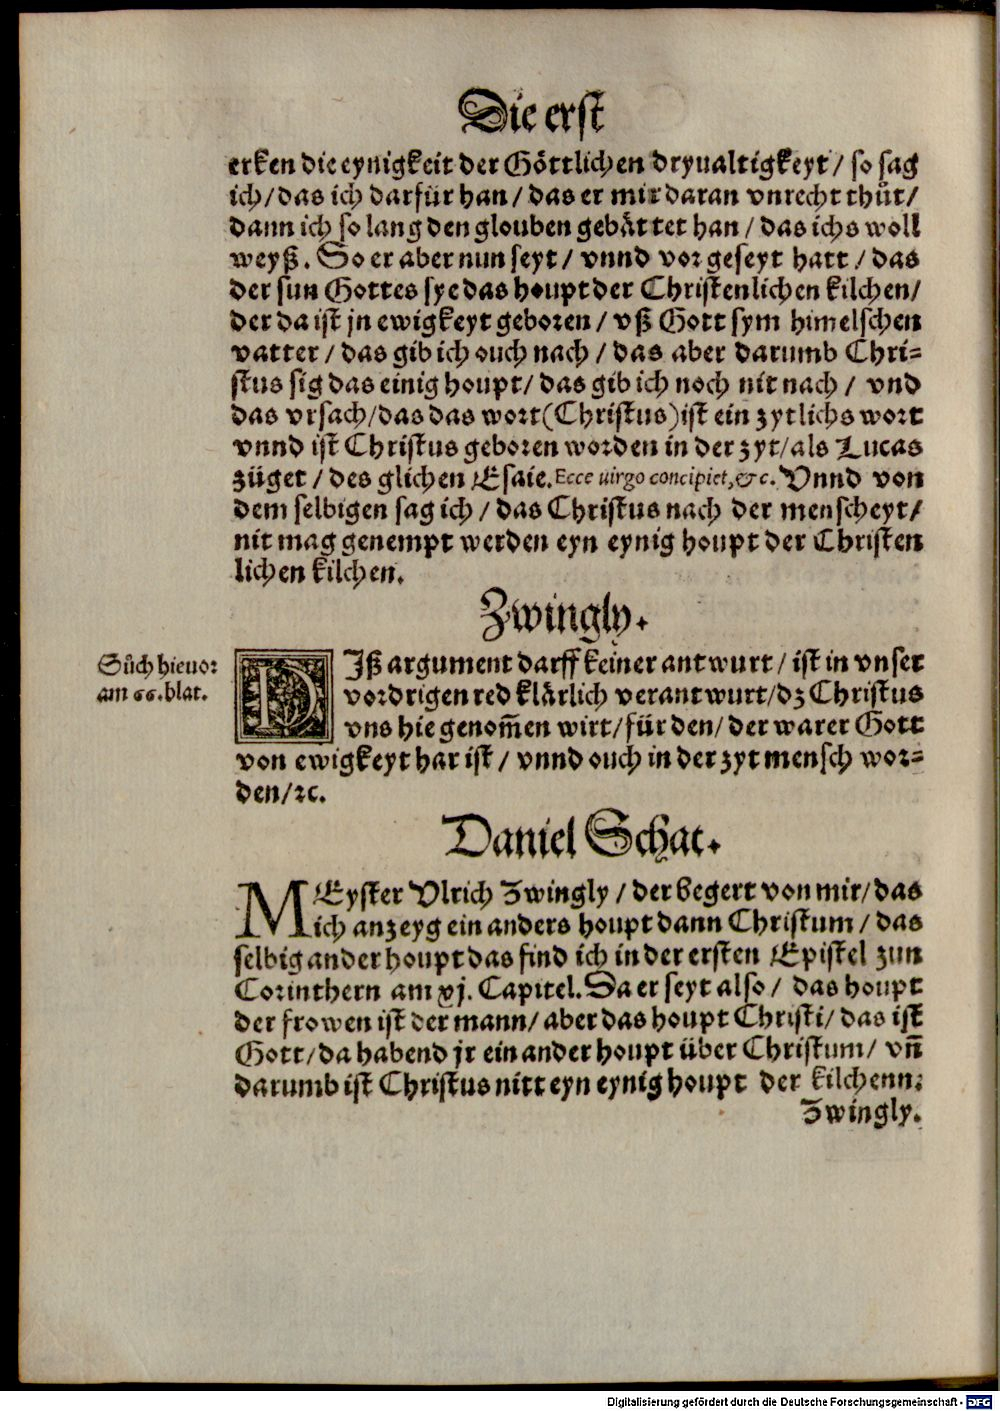 Die erst
erken die eynigkeit der Göttlichen dryualtigkeyt/ so sag
ich/ das ich darfür han/ das er mir daran vnrecht thůt/
dann ich so lang den glouben gebättet han/ das ichs woll
weyß. So er aber nun seyt/ vnnd vor geseyt hatt/ das
der sun Gottes sye das houpt der Christenlichen kilchen/
der da ist jn ewigkeyt geboren/ vß Gott sym himelschen
vatter/ das gib ich ouch nach/ das aber darumb Chri-
stus sig das einig houpt/ das gib ich noch nit nach/ vnd
das vrsach/ das das wort (Christus) ist ein zytlichs wort
vnnd ist Christus geboren worden in der zyt/ als Lucas
züget/ des glichen Esaie. Ecce uirgo concipiet, &c. Vnnd von
dem selbigen sag ich/ das Christus nach der menscheyt/
nit mag genempt werden eyn eynig houpt der Christen
lichen kilchen.
Zwingly.
Sůch hieuor
am 66. blat.
DIß argument darff keiner antwurt/ ist in vnser
vordrigen red klärlich verantwurt/ dz Christus
vns hie genom̄en wirt/ für den/ der warer Gott
von ewigkeyt har ist/ vnnd ouch in der zyt mensch wor-
den/ ꝛc.
Daniel Schat.
MEyster Vlrich Zwingly/ der begert von mir/ das
ich anzeyg ein anders houpt dann Christum/ das
selbig ander houpt das find ich in der ersten Epistel zun
Corinthern am xj. Capitel. Da er seyt also/ das houpt
der frowen ist der mann/ aber das houpt Christi/ das ist
Gott/ da habend jr ein ander houpt über Christum/ vn̄
darumb ist Christus nitt eyn eynig houpt der kilchenn.
Zwingly.
Digitalisierung gefördert durch die Deutsche Forschungsgemeinschaft - DFG